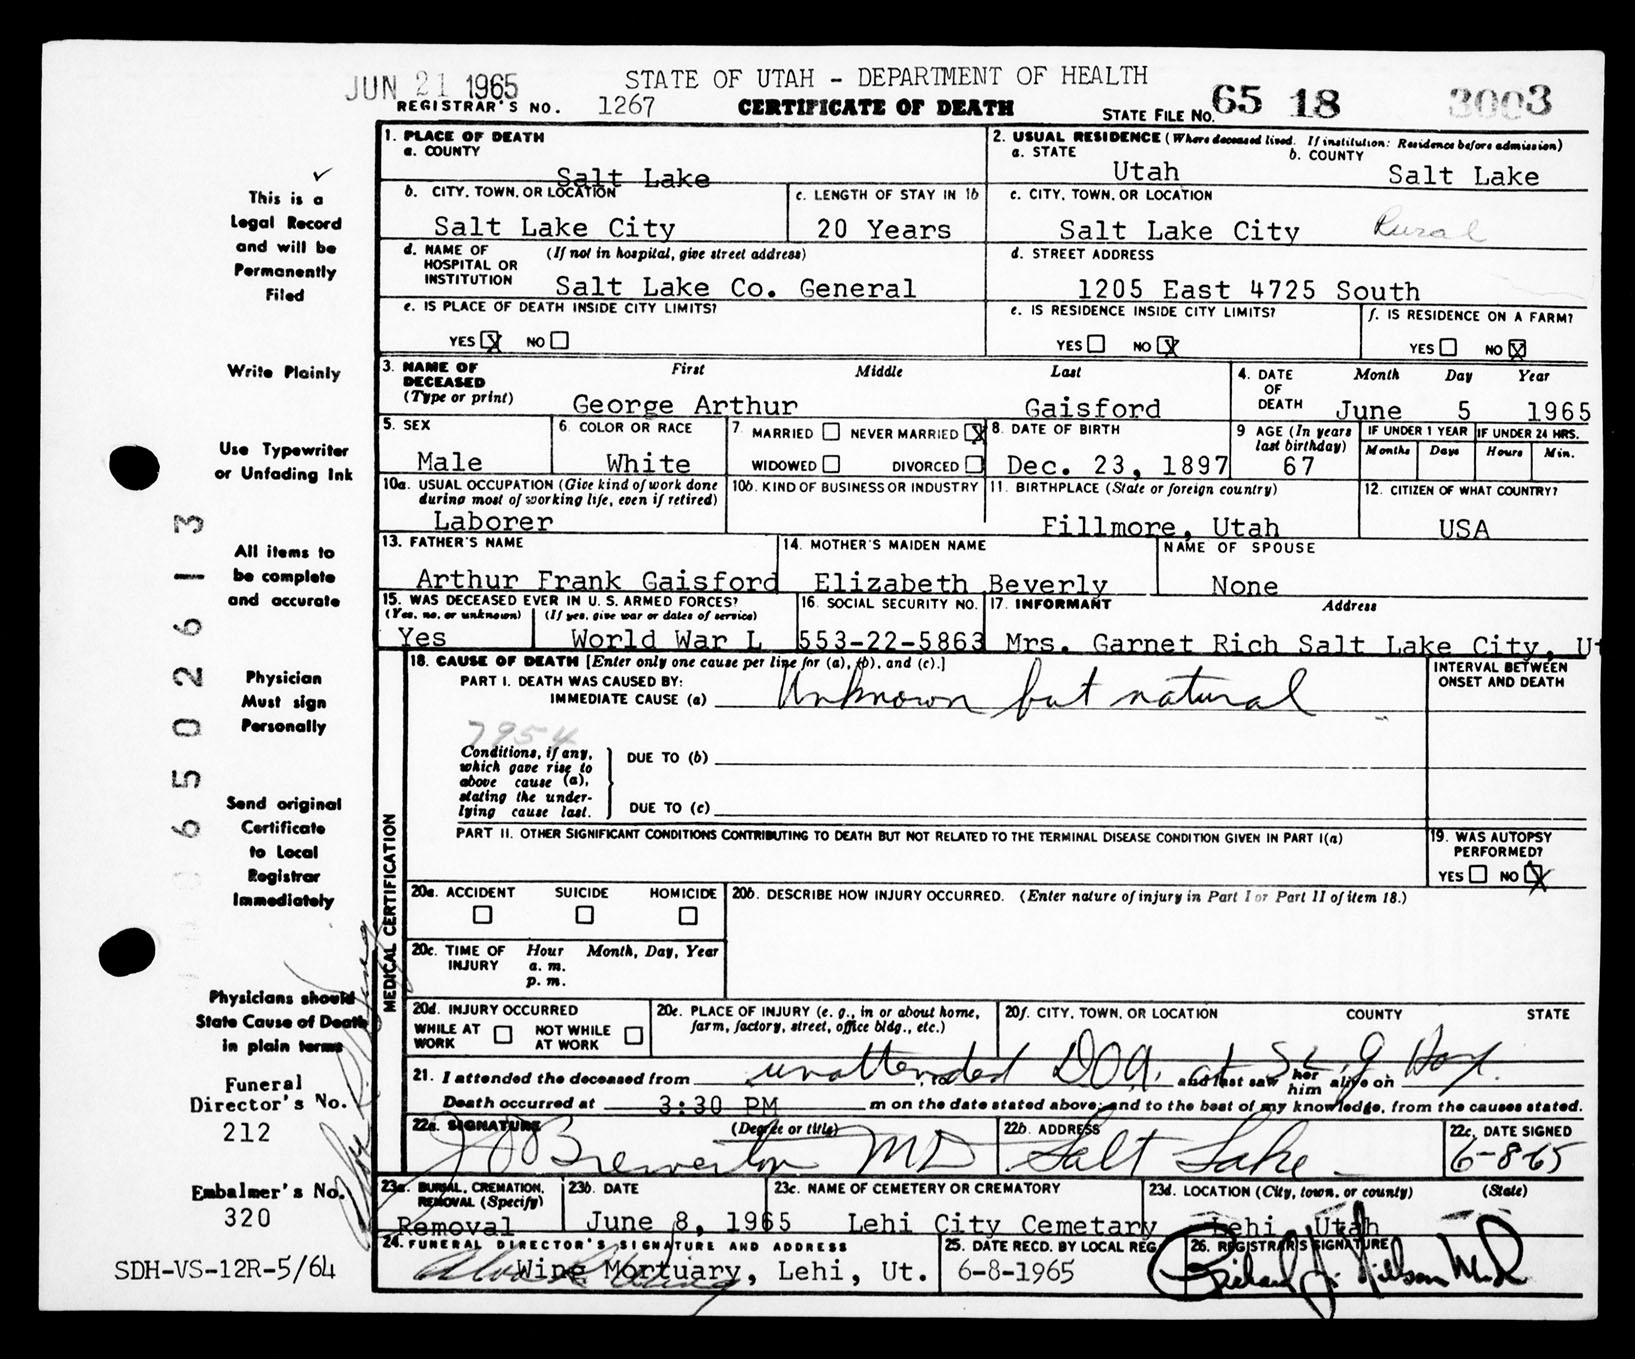 JUN 21 1965
STATE OF UTAH - DEPARTMENT OF HEALTH
REGISTRAR'S NO. 1267 CERTIFICATE OF DEATH STATE FILE NO. 65 18 3003
1. PLACE OF DEATH
a. COUNTY
Salt Lake
2. USUAL RESIDENCE (Where deceased lived. If institution: Residence before admission)
a. STATE b. COUNTY
Utah Salt Lake
b. CITY, TOWN, OR LOCATION
Salt Lake City
c. LENGTH OF STAY IN 1b
20 Years
c. CITY, TOWN, OR LOCATION
Salt Lake City Rural
d. NAME OF HOSPITAL OR INSTITUTION (If not in hospital, give street address)
Salt Lake Co. General
d. STREET ADDRESS
1205 East 4725 South
e. IS PLACE OF DEATH INSIDE CITY LIMITS?
YES X NO
e. IS RESIDENCE INSIDE CITY LIMITS?
YES NO X
f. IS RESIDENCE ON A FARM?
YES NO X
3. NAME OF DECEASED (Type or print) First Middle Last
George Arthur Gaisford
4. DATE OF DEATH Month Day Year
June 5 1965
5. SEX
Male
6. COLOR OR RACE
White
7. MARRIED NEVER MARRIED X
WIDOWED DIVORCED
8. DATE OF BIRTH
Dec. 23, 1897
9 AGE (In years last birthday)
67
IF UNDER 1 YEAR IF UNDER 24 HRS.
Months Days Hours Min.
10a. USUAL OCCUPATION (Give kind of work done during most of working life, even if retired)
Laborer
10b. KIND OF BUSINESS OR INDUSTRY
11. BIRTHPLACE (State or foreign country)
Fillmore, Utah
12. CITIZEN OF WHAT COUNTRY?
USA
13. FATHER'S NAME
Arthur Frank Gaisford
14. MOTHER'S MAIDEN NAME
Elizabeth Beverly
NAME OF SPOUSE
None
15. WAS DECEASED EVER IN U. S. ARMED FORCES?
(Yes, no, or unknown) (If yes, give war or dates of service)
Yes World War L
16. SOCIAL SECURITY NO.
553-22-5863
17. INFORMANT Address
Mrs. Garnet Rich Salt Lake City, Ut
18. CAUSE OF DEATH [Enter only one cause per line for (a), (b), and (c).]
PART I. DEATH WAS CAUSED BY:
IMMEDIATE CAUSE (a) Unknown but natural
INTERVAL BETWEEN ONSET AND DEATH
7954
Conditions, if any, which gave rise to above cause (a), stating the under-lying cause last.
DUE TO (b)
DUE TO (c)
PART II. OTHER SIGNIFICANT CONDITIONS CONTRIBUTING TO DEATH BUT NOT RELATED TO THE TERMINAL DISEASE CONDITION GIVEN IN PART I(a)
19. WAS AUTOPSY PERFORMED?
YES NO X
MEDICAL CERTIFICATION
20a. ACCIDENT SUICIDE HOMICIDE
20b. DESCRIBE HOW INJURY OCCURRED. (Enter nature of injury in Part I or Part II of item 18.)
20c. TIME OF INJURY Hour Month, Day, Year
a. m.
p. m.
20d. INJURY OCCURRED
WHILE AT WORK NOT WHILE AT WORK
20e. PLACE OF INJURY (e. g., in or about home, farm, factory, street, office bldg., etc.)
20f. CITY, TOWN, OR LOCATION COUNTY STATE
unattended DOA. at S L G Hosp.
21. I attended the deceased from and last saw her him alive on
Death occurred at 3:30 PM m on the date stated above; and to the best of my knowledge, from the causes stated.
22a. SIGNATURE (Degree or title)
Brewerton MD
22b. ADDRESS
Salt Lake
22c. DATE SIGNED
6-8-65
23a. BURIAL, CREMATION, REMOVAL (Specify)
Removal
23b. DATE
June 8, 1965
23c. NAME OF CEMETERY OR CREMATORY
Lehi City Cemetary
23d. LOCATION (City, town, or county) (State)
Lehi Utah
24. FUNERAL DIRECTOR'S SIGNATURE AND ADDRESS
Wing Mortuary, Lehi, Ut.
25. DATE RECD. BY LOCAL REG
6-8-1965
26. REGISTRAR'S SIGNATURE
This is a
Legal Record
and will be
Permanently
Filed
Write Plainly
Use Typewriter
or Unfading Ink
All items to
be complete
and accurate
Physician
Must sign
Personally
Send original
Certificate
to Local
Registrar
Immediately
Physicians should
State Cause of Death
in plain terms
Funeral
Director's No.
212
Embalmer's No.
320
SDH-VS-12R-5/64